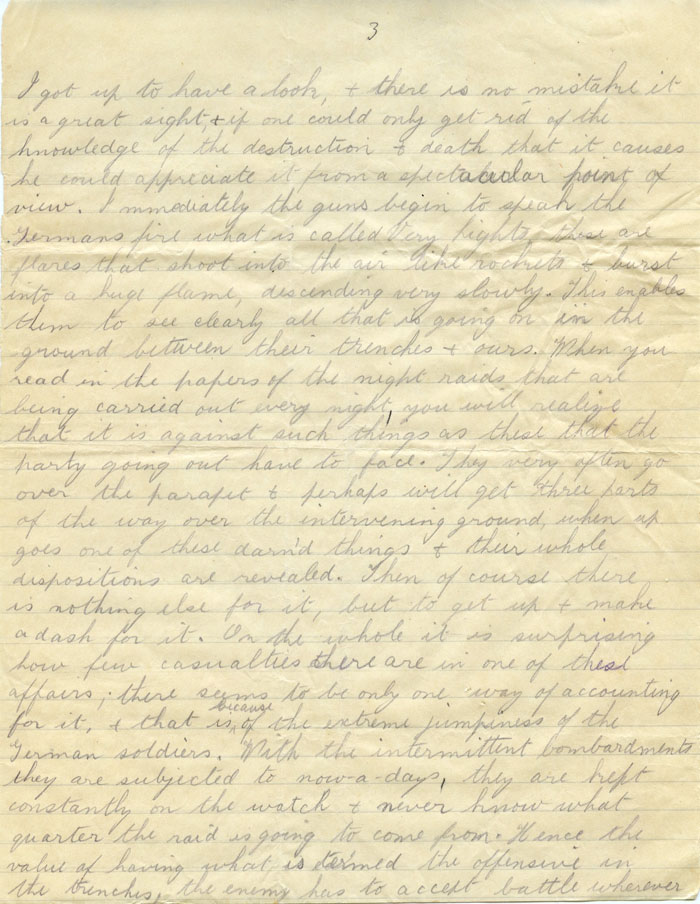 3
I got up to have a look, & there is no mistake it
is a great sight, & if one could only get rid of the
knowledge of the destruction & death that it causes
he could appreciate it from a spectacular point of
view. Immediately the guns begin to speak the
Germans fire what is called Very lights, these are
flares that shoot into the air like rockets & burst
into a huge flame, descending very slowly. This enables
them to see clearly all that is going on in the
ground between their trenches & ours. When you
read in the papers of the night raids that are
being carried out every night, you will realize
that it is against such things as these that the
party going out have to face. They very often go
over the parapet & perhaps will get three parts
of the way over the intervening ground, when up
goes one of these darn'd things & their whole
dispositions are revealed. Then of course there
is nothing else for it, but to get up & make
a dash for it. On the whole it is surprising
how few casualties there are in one of these
affairs, there seems to be only one way of accounting
for it, & that is because of the extreme jumpiness of the
German soldiers. With the intermittent bombardments
they are subjected to now-a-days, they are kept
constantly on the watch & never know what
quarter the raid is going to come from. Hence the
value of having what is termed the offensive in
the trenches, the enemy has to accept battle wherever